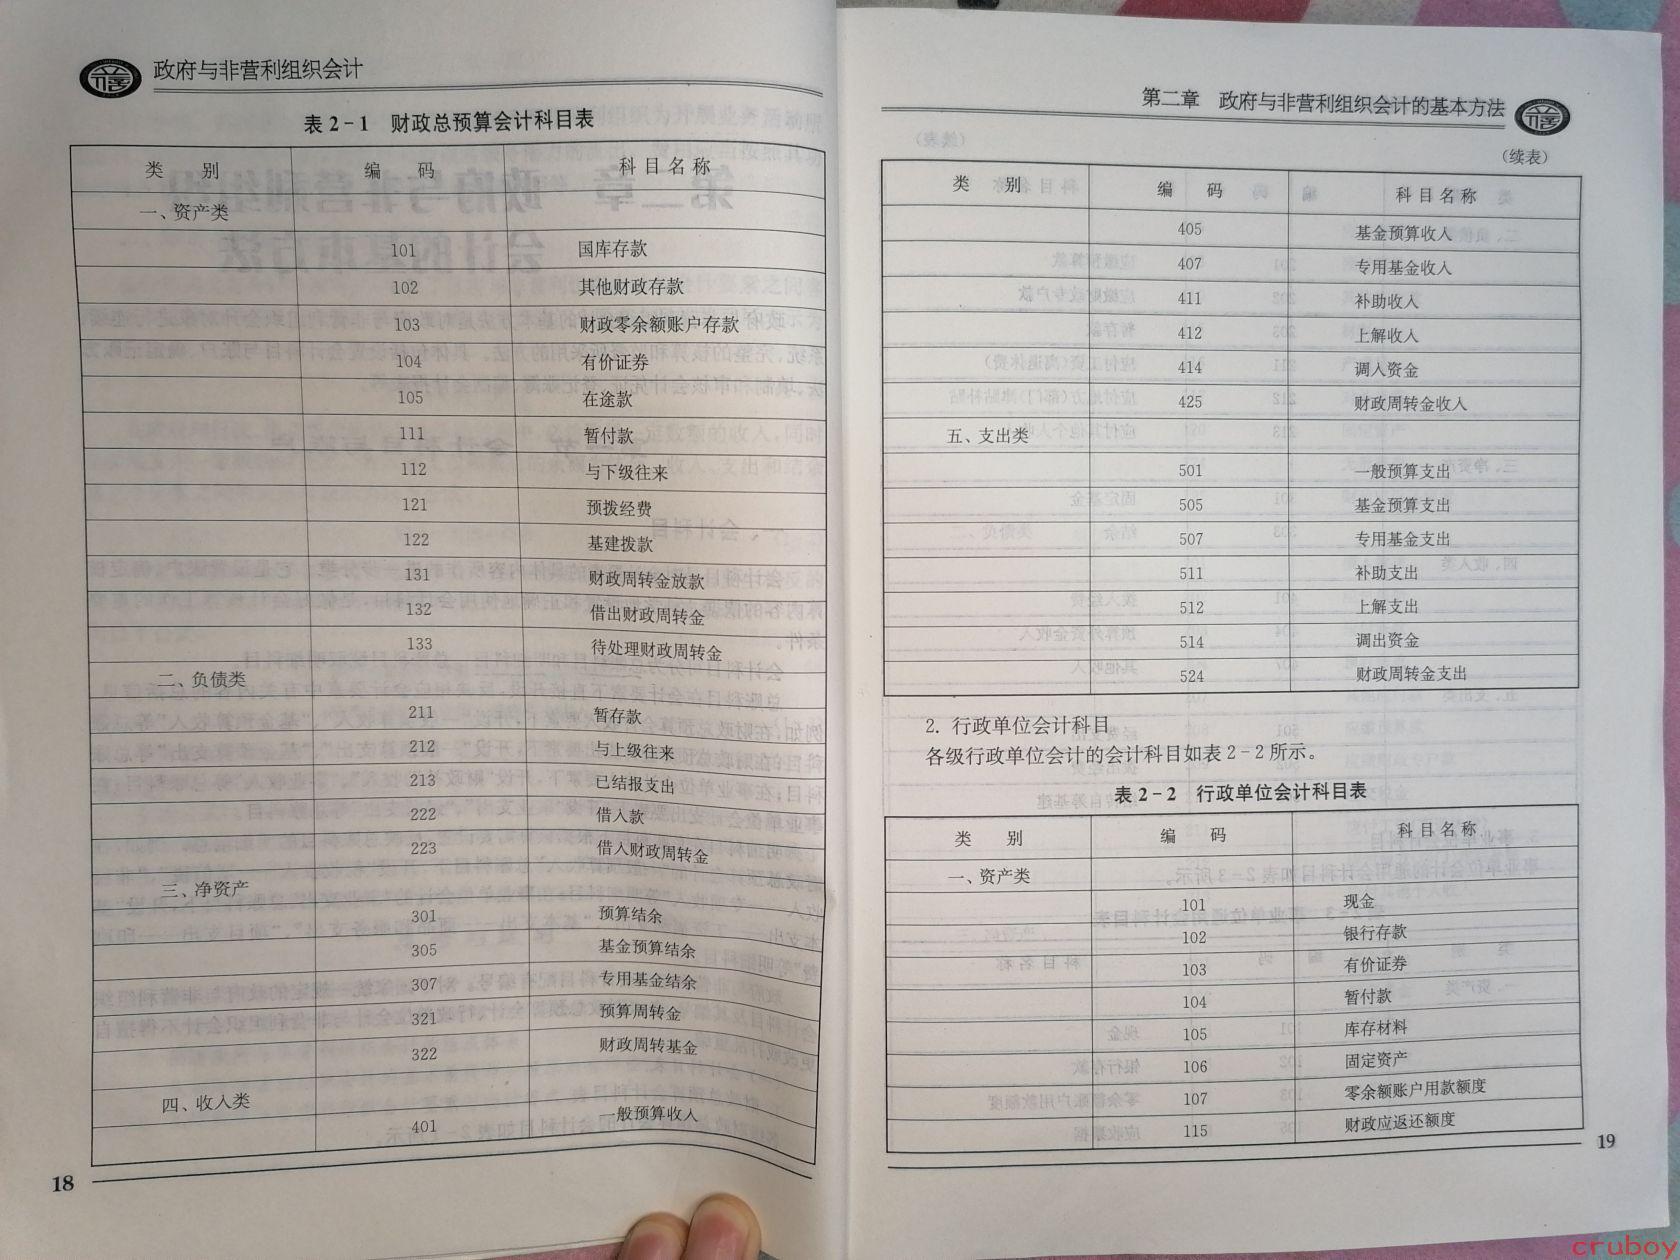 政府与非营利组织会计
表 2-1 财政总预算会计科目表
类 别 编 码 科目名称
一、资产类
101 国库存款
102 其他财政存款
103 财政零余额账户存款
104 有价证券
105 在途款
111 暂付款
112 与下级往来
121 预拨经费
122 基建拨款
131 财政周转金放款
132 借出财政周转金
133 待处理财政周转金
二、负债类
211 暂存款
212 与上级往来
213 已结报支出
222 借入款
223 借入财政周转金
三、净资产
301 预算结余
305 基金预算结余
307 专用基金结余
321 预算周转金
322 财政周转基金
四、收入类
401 一般预算收入
18
第二章 政府与非营利组织会计的基本方法
(续表)
类 别 编 码 科目名称
405 基金预算收入
407 专用基金收入
411 补助收入
412 上解收入
414 调入资金
425 财政周转金收入
五、支出类
501 一般预算支出
505 基金预算支出
507 专用基金支出
511 补助支出
512 上解支出
514 调出资金
524 财政周转金支出
2. 行政单位会计科目
各级行政单位会计的会计科目如表 2-2 所示。
表 2-2 行政单位会计科目表
类 别 编 码 科目名称
一、资产类
101 现金
102 银行存款
103 有价证券
104 暂付款
105 库存材料
106 固定资产
107 零余额账户用款额度
115 财政应返还额度
19
cruboy